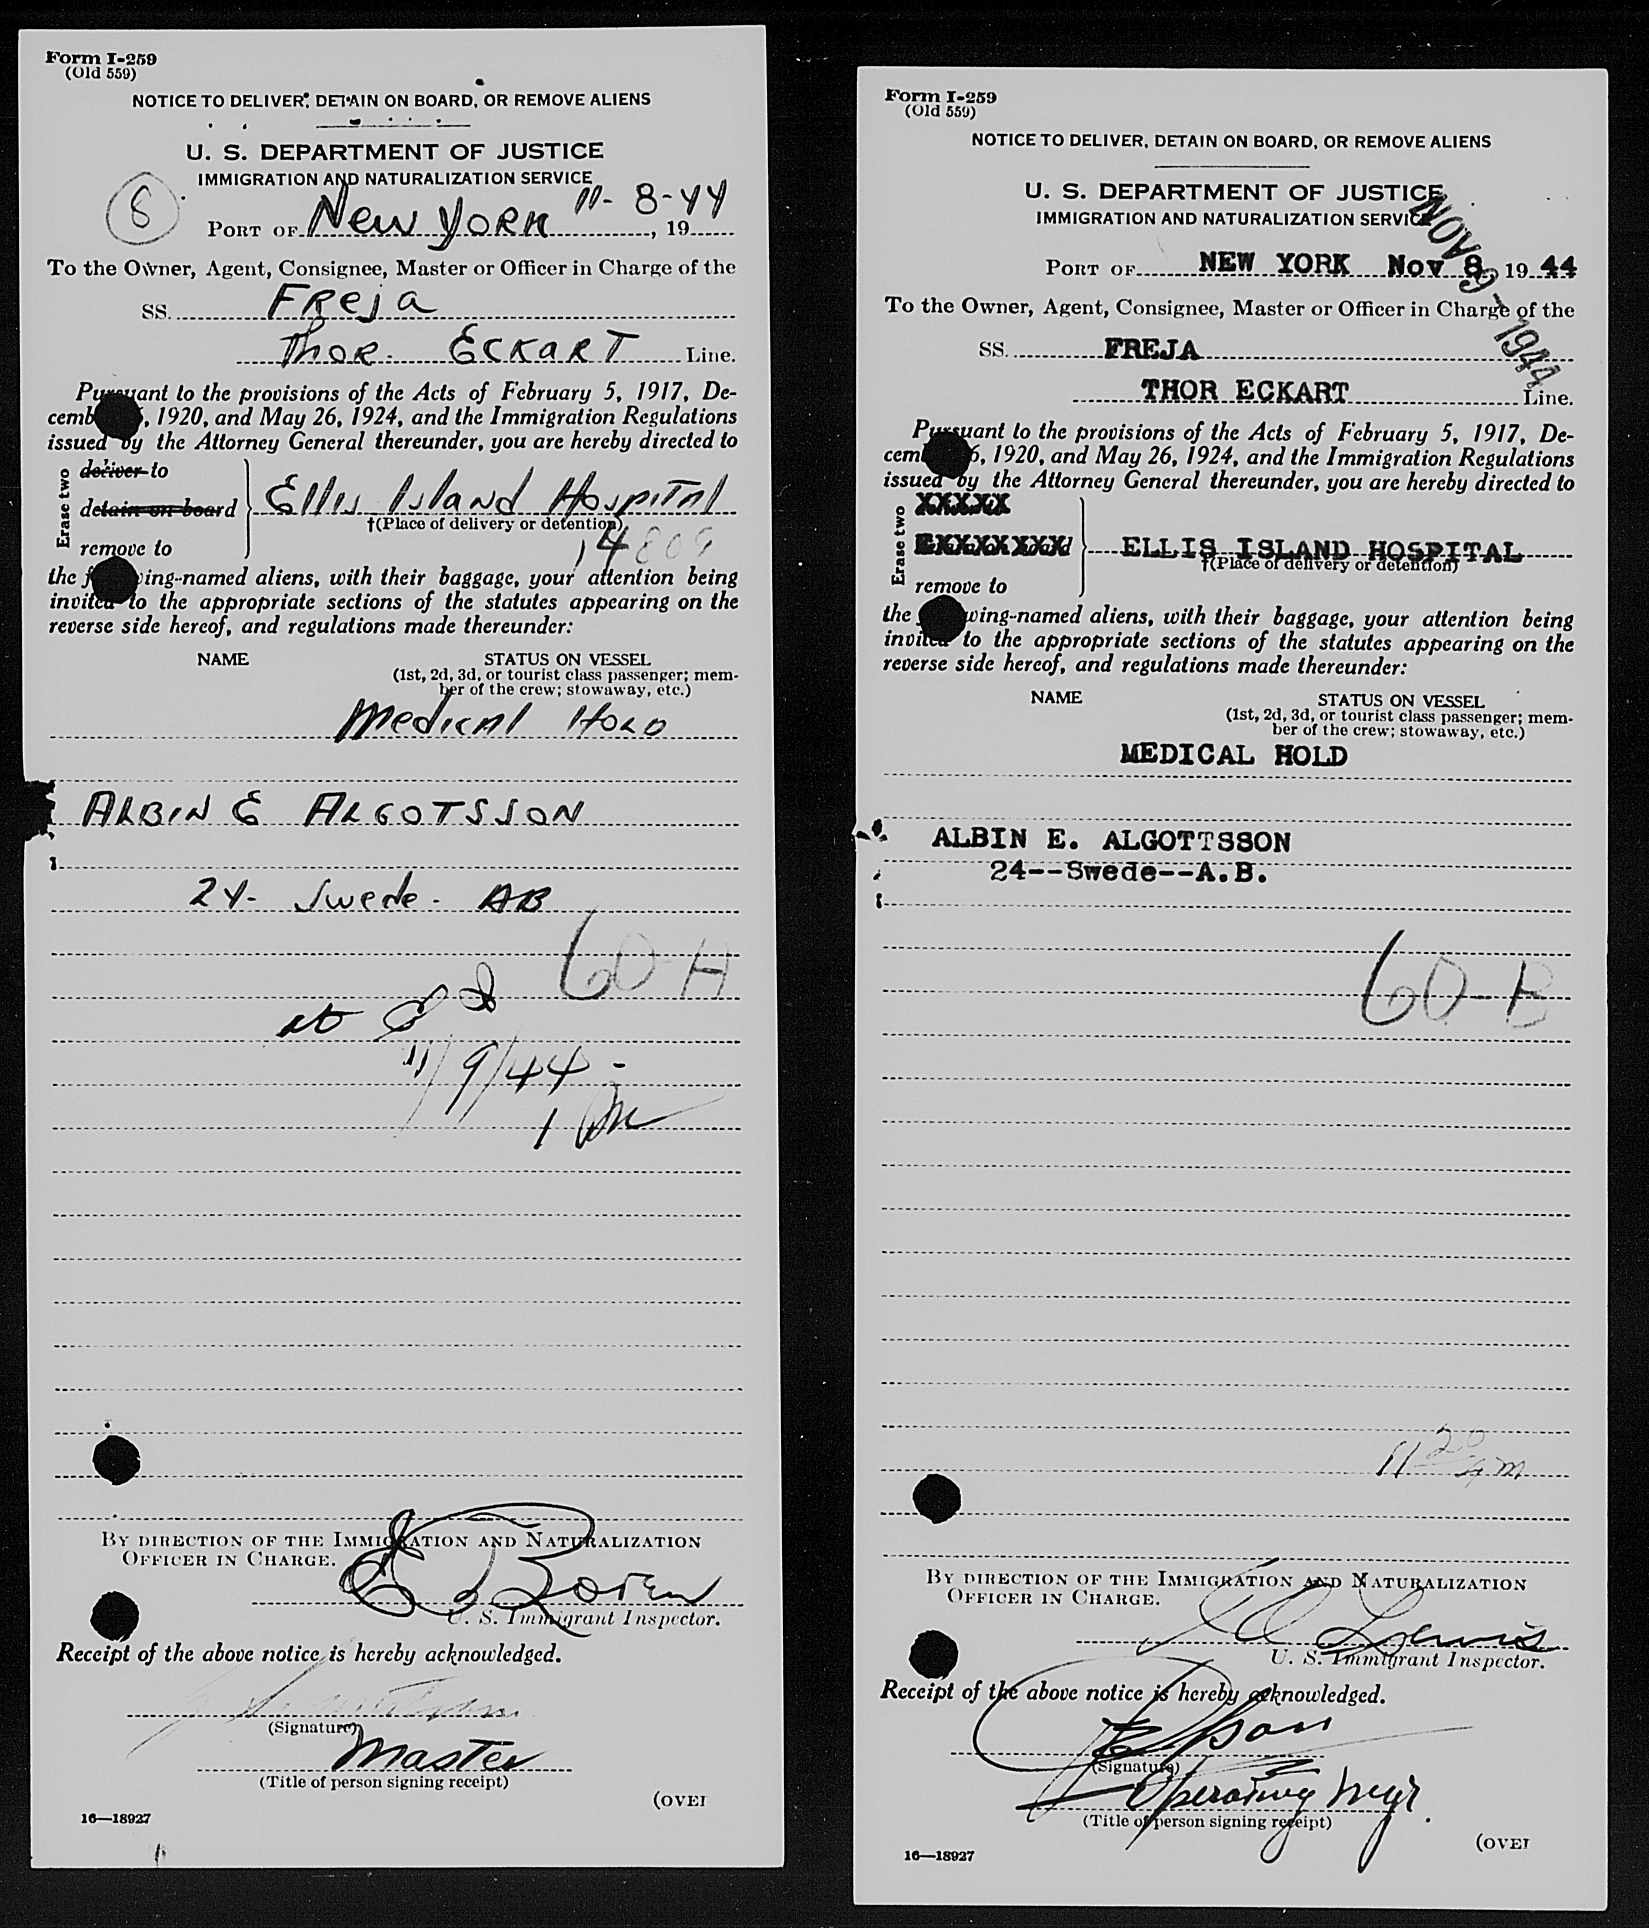 Form I-259
(Old 559)
NOTICE TO DELIVER, DETAIN ON BOARD, OR REMOVE ALIENS
U. S. DEPARTMENT OF JUSTICE
IMMIGRATION AND NATURALIZATION SERVICE
8
11-8-44
PORT OF New York , 19
To the Owner, Agent, Consignee, Master or Officer in Charge of the
SS. Freja
Thor Eckart Line.
Pursuant to the provisions of the Acts of February 5, 1917, De-
cemb , 1920, and May 26, 1924, and the Immigration Regulations
issued by the Attorney General thereunder, you are hereby directed to
Erase two
deliver to
detain on board
remove to
Ellis Island Hospital
†(Place of delivery or detention)
the ing-named aliens, with their baggage, your attention being
invited to the appropriate sections of the statutes appearing on the
reverse side hereof, and regulations made thereunder:
NAME STATUS ON VESSEL
(1st, 2d, 3d, or tourist class passenger; mem-
ber of the crew; stowaway, etc.)
Medical Hold
ALBIN E ALGOTSSON
24- Swede- AB
60-H
at
11/9/44 -
1
BY DIRECTION OF THE IMMIGRATION AND NATURALIZATION
OFFICER IN CHARGE.
U. S. Immigrant Inspector.
Receipt of the above notice is hereby acknowledged.
(Signature)
Master
(Title of person signing receipt)
(OVER
16—18927
Form I-259
(Old 559)
NOTICE TO DELIVER, DETAIN ON BOARD, OR REMOVE ALIENS
U. S. DEPARTMENT OF JUSTICE
IMMIGRATION AND NATURALIZATION SERVICE
NOV 9 - 1944
PORT OF NEW YORK Nov 8, 19 44
To the Owner, Agent, Consignee, Master or Officer in Charge of the
SS. FREJA
THOR ECKART Line.
Pursuant to the provisions of the Acts of February 5, 1917, De-
cem 6, 1920, and May 26, 1924, and the Immigration Regulations
issued by the Attorney General thereunder, you are hereby directed to
Erase two
remove to
ELLIS ISLAND HOSPITAL
†(Place of delivery or detention)
the wing-named aliens, with their baggage, your attention being
invited to the appropriate sections of the statutes appearing on the
reverse side hereof, and regulations made thereunder:
NAME STATUS ON VESSEL
(1st, 2d, 3d, or tourist class passenger; mem-
ber of the crew; stowaway, etc.)
MEDICAL HOLD
ALBIN E. ALGOTTSSON
24--Swede--A.B.
11 20 am
BY DIRECTION OF THE IMMIGRATION AND NATURALIZATION
OFFICER IN CHARGE.
Lewis
U. S. Immigrant Inspector.
Receipt of the above notice is hereby acknowledged.
(Signature)
Operating Mgr.
(Title of person signing receipt)
(OVER
16—18927